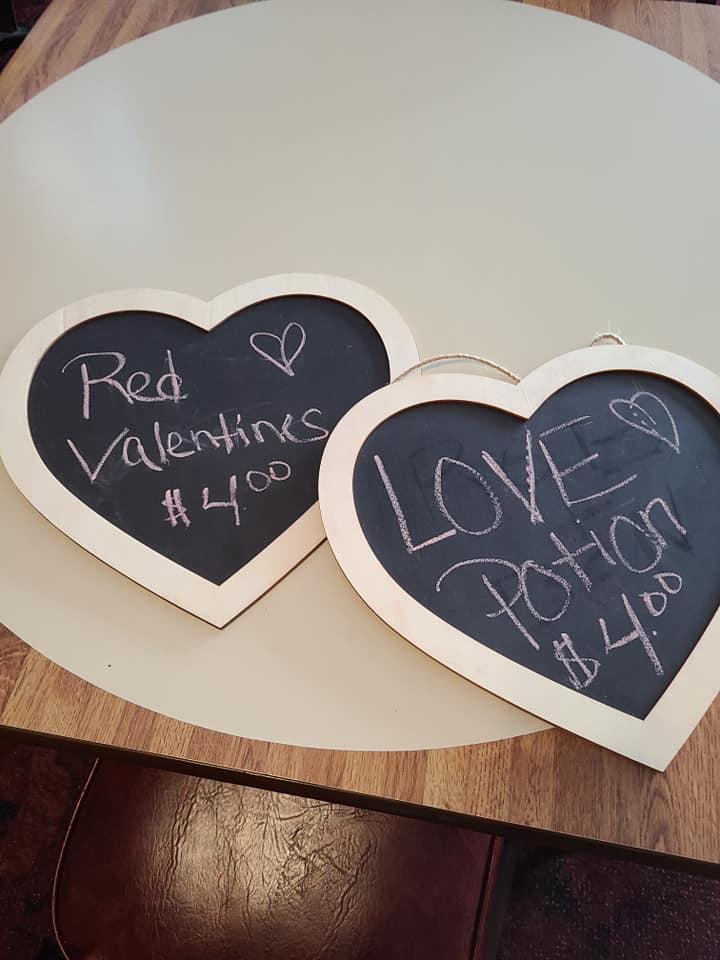 Red
Valentines
$4.00
LOVE
Potion
$4.00